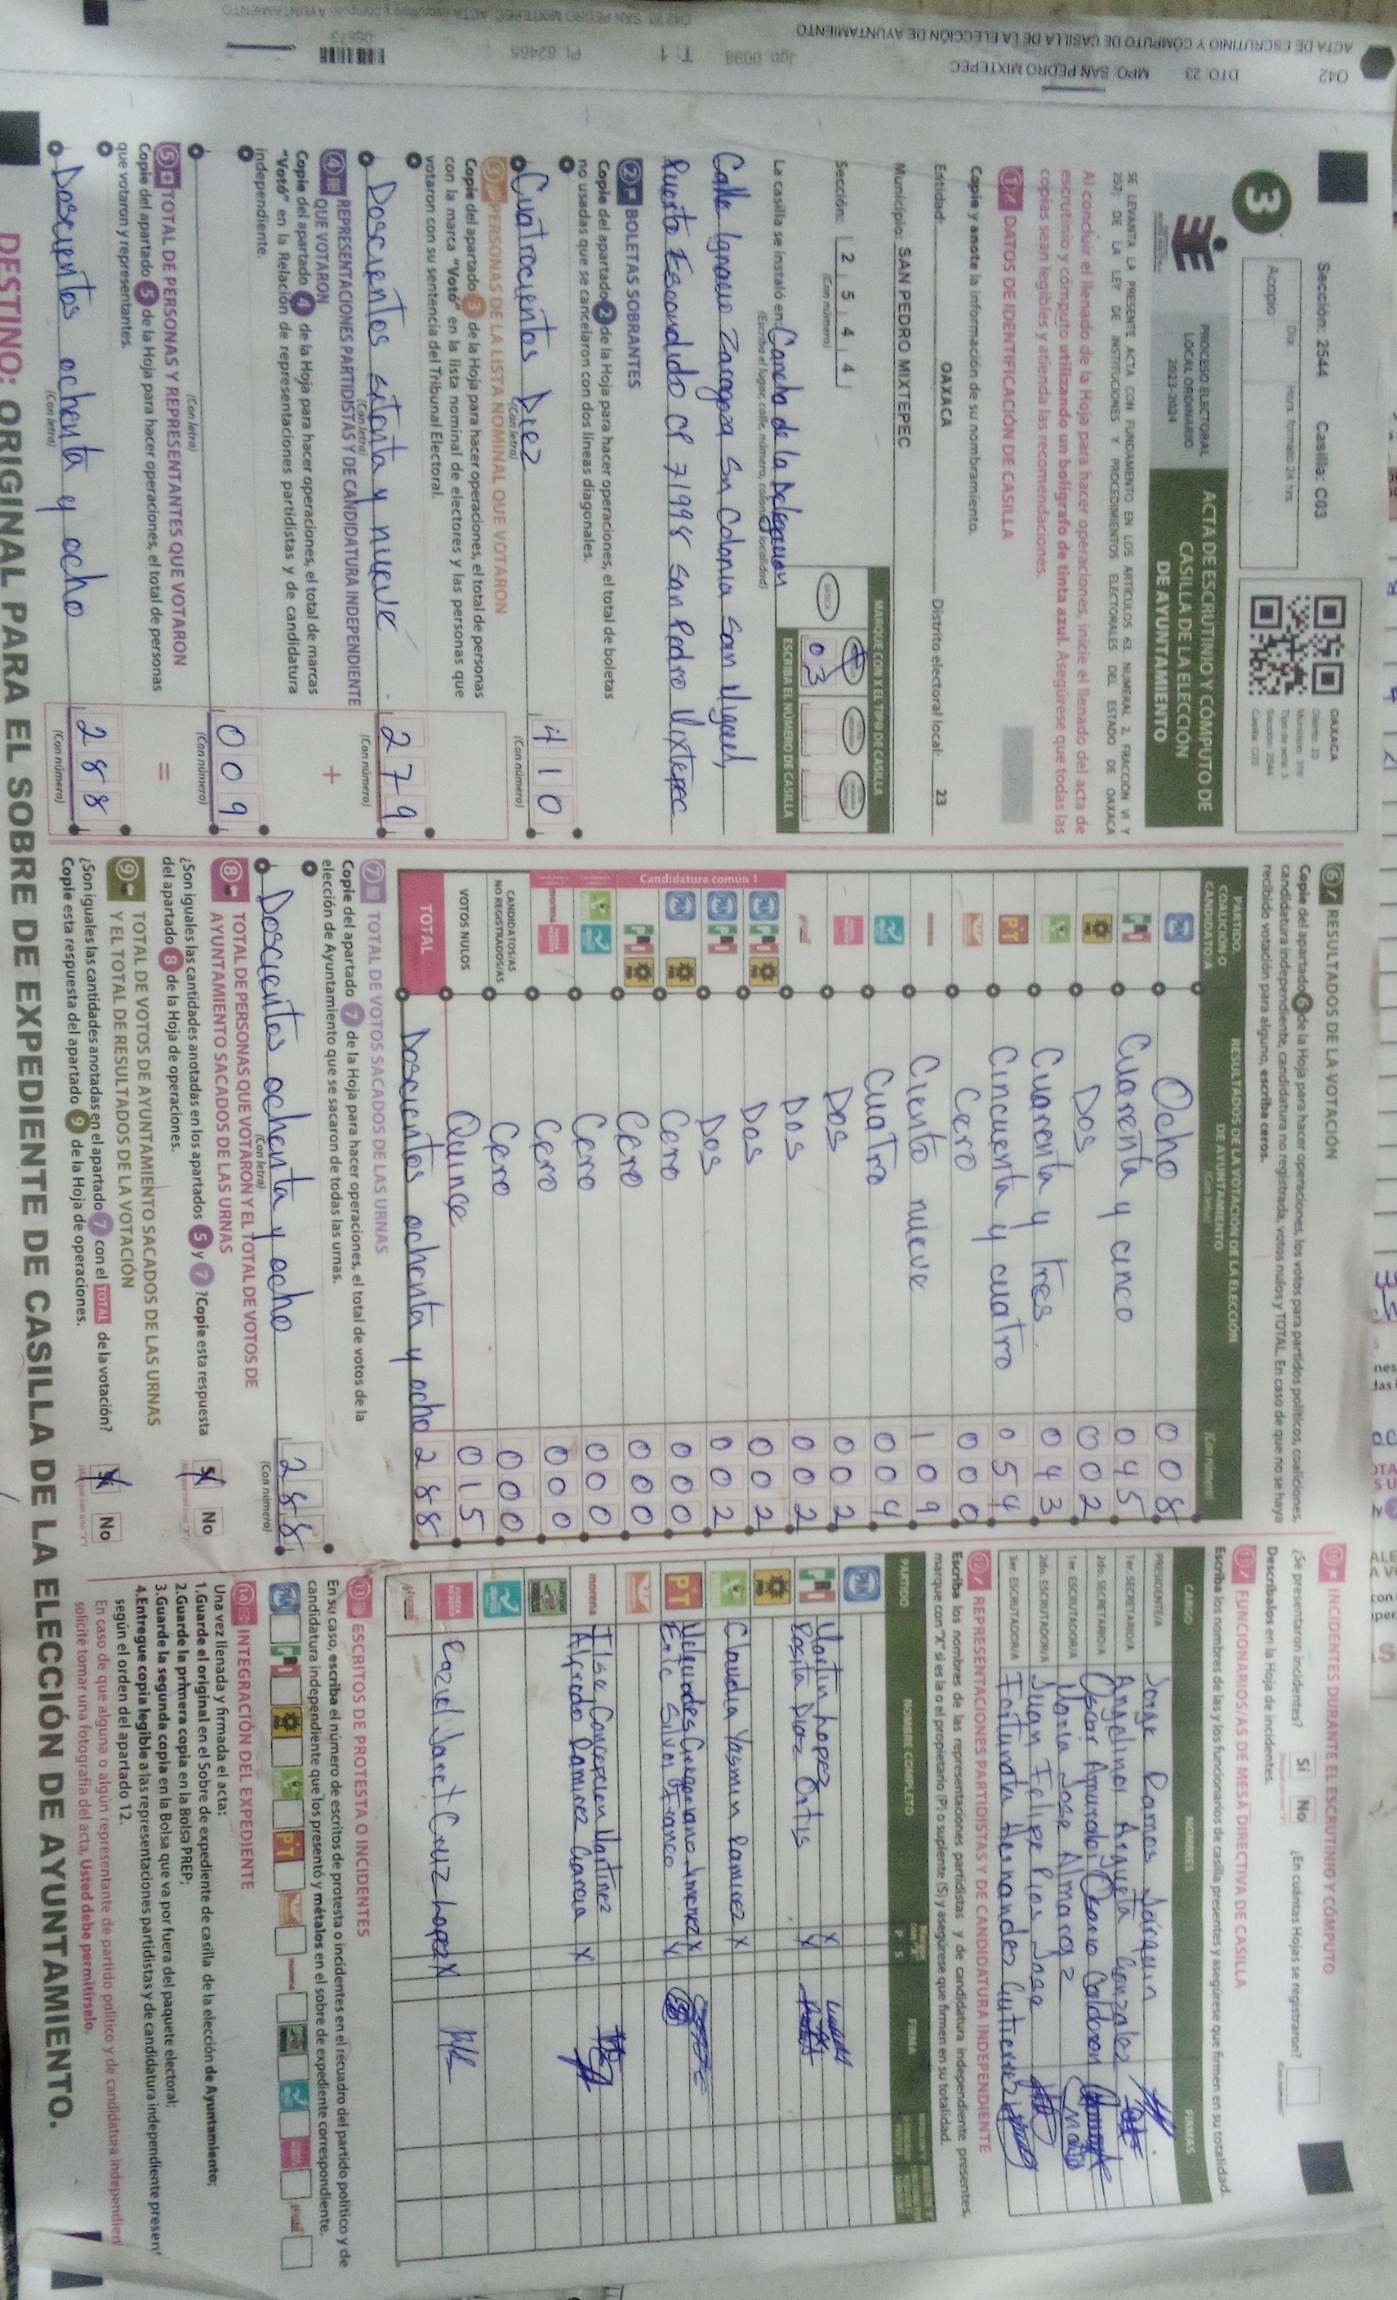 042 DTO. 23 MPO. SAN PEDRO MIXTEPEC
ACTA DE ESCRUTINIO Y CÓMPUTO DE CASILLA DE LA ELECCIÓN DE AYUNTAMIENTO
Jgo. 0098 T: 1 Pl 62465
Sección: 2544 Casilla: C03
3
Día: Hora formato 24 hrs.
Acopio:
OAXACA
PROCESO ELECTORAL
LOCAL ORDINARIO
2023-2024
ACTA DE ESCRUTINIO Y CÓMPUTO DE
CASILLA DE LA ELECCIÓN
DE AYUNTAMIENTO
SE LEVANTA LA PRESENTE ACTA CON FUNDAMENTO EN LOS ARTÍCULOS 63, NUMERAL 2, FRACCIÓN VI Y
257; DE LA LEY DE INSTITUCIONES Y PROCEDIMIENTOS ELECTORALES DEL ESTADO DE OAXACA
Al concluir el llenado de la Hoja para hacer operaciones, inicie el llenado del acta de
escrutinio y cómputo utilizando un bolígrafo de tinta azul. Asegúrese que todas las
copias sean legibles y atienda las recomendaciones.
1 DATOS DE IDENTIFICACIÓN DE CASILLA
Copie y anote la información de su nombramiento.
Entidad: OAXACA Distrito electoral local: 23
Municipio: SAN PEDRO MIXTEPEC
Sección: 2 5 4 4
(Con número)
MARQUE CON X EL TIPO DE CASILLA
03
ESCRIBA EL NÚMERO DE CASILLA
La casilla se instaló en: Cancha de la Delegacion
(Escriba el lugar, calle, número, colonia o localidad)
Calle Ignacio Zaragoza Sn Colonia San Miguel,
Puerto Escondido CP 71998 San Pedro Mixtepec
2 BOLETAS SOBRANTES
Copie del apartado 2 de la Hoja para hacer operaciones, el total de boletas
no usadas que se cancelaron con dos líneas diagonales.
Cuatrocientos Diez 410
(Con letra) (Con número)
3 PERSONAS DE LA LISTA NOMINAL QUE VOTARON
Copie del apartado 3 de la Hoja para hacer operaciones, el total de personas
con la marca "Votó" en la lista nominal de electores y las personas que
votaron con su sentencia del Tribunal Electoral.
Doscientos setenta y nueve 279
(Con letra) (Con número)
4 REPRESENTACIONES PARTIDISTAS Y DE CANDIDATURA INDEPENDIENTE
QUE VOTARON
+
Copie del apartado 4 de la Hoja para hacer operaciones, el total de marcas
"Votó" en la Relación de representaciones partidistas y de candidatura
independiente.
009
(Con letra) (Con número)
5 TOTAL DE PERSONAS Y REPRESENTANTES QUE VOTARON
=
Copie del apartado 5 de la Hoja para hacer operaciones, el total de personas
que votaron y representantes.
Doscientos ochenta y ocho 288
(Con letra) (Con número)
6 RESULTADOS DE LA VOTACIÓN
Copie del apartado 6 de la Hoja para hacer operaciones, los votos para partidos políticos, coaliciones,
candidatura independiente, candidatura no registrada, votos nulos y TOTAL. En caso de que no se haya
recibido votación para alguno, escriba ceros.
PARTIDO, COALICIÓN O CANDIDATO/A
RESULTADOS DE LA VOTACIÓN DE LA ELECCIÓN
DE AYUNTAMIENTO
(Con letra) (Con número)
PAN Ocho 008
PRI Cuarenta y cinco 045
Dos 002
Cuarenta y tres 043
PT Cincuenta y cuatro 054
Cero 000
Ciento nueve 109
Cuatro 004
Dos 002
Dos 002
Candidatura común 1
Dos 002
Dos 002
Cero 000
Cero 000
Cero 000
Cero 000
CANDIDATOS/AS
NO REGISTRADOS/AS Cero 000
VOTOS NULOS Quince 015
TOTAL Doscientos ochenta y ocho 288
7 TOTAL DE VOTOS SACADOS DE LAS URNAS
Copie del apartado 7 de la Hoja para hacer operaciones, el total de votos de la
elección de Ayuntamiento que se sacaron de todas las urnas.
Doscientos ochenta y ocho 288
(Con letra) (Con número)
8 TOTAL DE PERSONAS QUE VOTARON Y EL TOTAL DE VOTOS DE
AYUNTAMIENTO SACADOS DE LAS URNAS
¿Son iguales las cantidades anotadas en los apartados 5 y 7? Copie esta respuesta
del apartado 8 de la Hoja de operaciones.
Sí No
9 TOTAL DE VOTOS DE AYUNTAMIENTO SACADOS DE LAS URNAS
Y EL TOTAL DE RESULTADOS DE LA VOTACIÓN
¿Son iguales las cantidades anotadas en el apartado 7 con el TOTAL de la votación?
Copie esta respuesta del apartado 9 de la Hoja de operaciones.
Sí No
10 INCIDENTES DURANTE EL ESCRUTINIO Y CÓMPUTO
¿Se presentaron incidentes? Sí No ¿En cuántas Hojas se registraron?
Descríbalos en la Hoja de incidentes.
11 FUNCIONARIOS/AS DE MESA DIRECTIVA DE CASILLA
Escriba los nombres de las y los funcionarios de casilla presentes y asegúrese que firmen en su totalidad.
CARGO NOMBRES FIRMAS
PRESIDENTE/A Jorge Ramos Joaquin
1er. SECRETARIO/A Angelina Argueta Gonzalez
2do. SECRETARIO/A Oscar Osorio Calderon
1er. ESCRUTADOR/A Maria Jose Almaraz
2do. ESCRUTADOR/A Juan Felipe Rios Sosa
3er. ESCRUTADOR/A Fortunata Hernandez Gutierrez
12 REPRESENTACIONES PARTIDISTAS Y DE CANDIDATURA INDEPENDIENTE
Escriba los nombres de las representaciones partidistas y de candidatura independiente presentes,
marque con "X" si es la o el propietario (P) o suplente (S) y asegúrese que firmen en su totalidad.
PARTIDO NOMBRE COMPLETO P S FIRMA
PAN
PRI Martin Lopez X
Rosita Diaz Ortis X
Claudia Yasmin Ramirez X
PT
X
Eric Silva Franco X
morena Ilse Concepcion Martinez
Alfredo Ramirez Garcia X
Raziel Jaret Cruz Lopez X
13 ESCRITOS DE PROTESTA O INCIDENTES
En su caso, escriba el número de escritos de protesta o incidentes en el recuadro del partido político y de
candidatura independiente que los presentó y métalos en el sobre de expediente correspondiente.
14 INTEGRACIÓN DEL EXPEDIENTE
Una vez llenada y firmada el acta:
1.Guarde el original en el Sobre de expediente de casilla de la elección de Ayuntamiento;
2.Guarde la primera copia en la Bolsa PREP;
3.Guarde la segunda copia en la Bolsa que va por fuera del paquete electoral;
4.Entregue copia legible a las representaciones partidistas y de candidatura independiente presen
según el orden del apartado 12.
En caso de que alguna o algún representante de partido político y de candidatura independien
solicite tomar una fotografía del acta, Usted debe permitírselo.
DESTINO: ORIGINAL PARA EL SOBRE DE EXPEDIENTE DE CASILLA DE LA ELECCIÓN DE AYUNTAMIENTO.